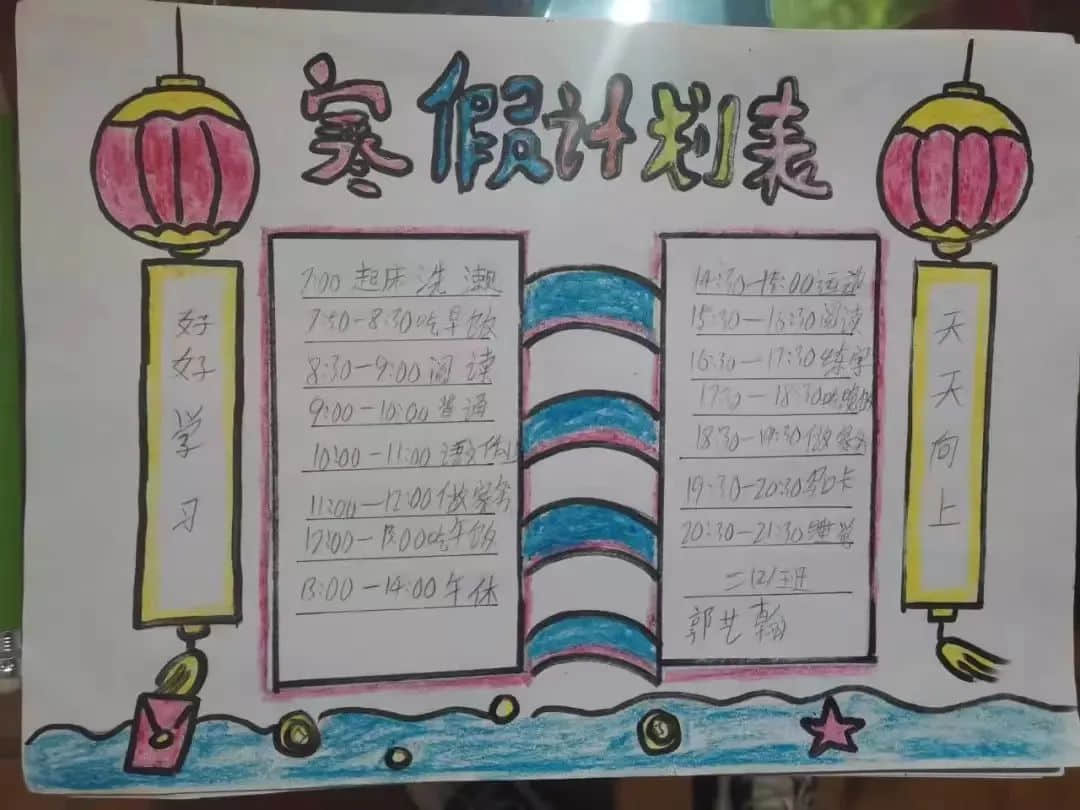 寒假计划表
好好学习
7:00起床洗濑
7:30-8:30吃早饭
8:30-9:00阅读
9:00-10:00普通
10:00-11:00语
11:00-12:00做家务
12:00-13:00吃午饭
13:00-14:00午休
14:30-15:00运动
15:30-16:30阅读
16:30-17:30练字
17:30-18:30吃晚饭
18:30-19:30做家务
19:30-20:30打卡
20:30-21:30睡觉
二(2)班
郭艺翰
天天向上